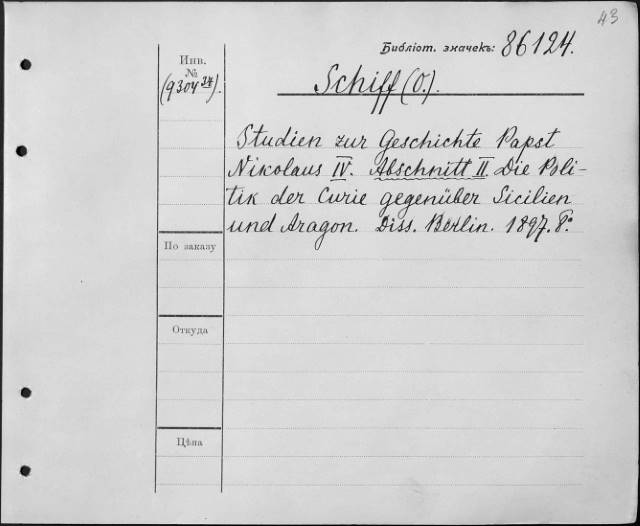 43
Библіот. значекъ: 86124.
Инв.
№
(9304 34).
Schiff (O.).
Studien zur Geschichte Papst
Nikolaus IV. Abschnitt II. Die Poli-
tik der Curie gegenüber Sicilien
und Aragon. Diss. Berlin. 1897. 8°.
По заказу
Откуда
Цѣна